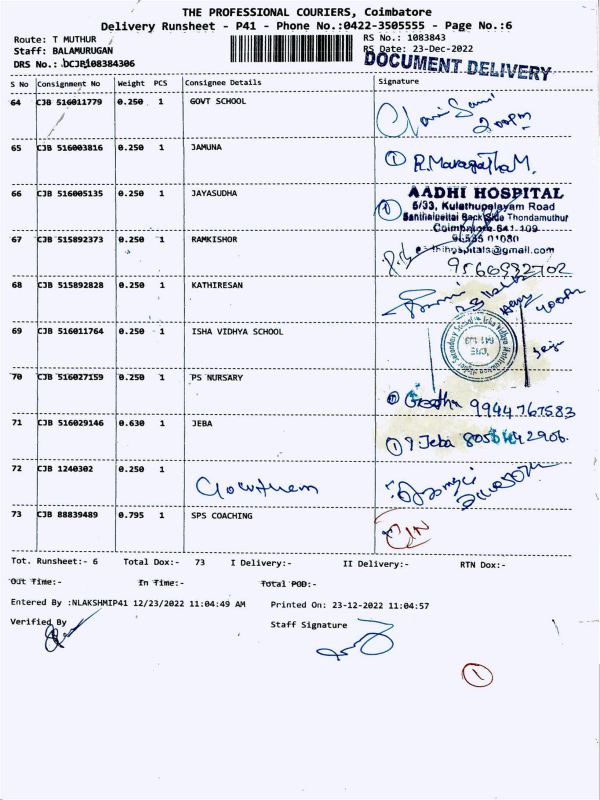 THE PROFESSIONAL COURIERS, Coimbatore
Delivery Runsheet - P41 - Phone No.:0422-3505555 - Page No.:6
Route: T MUTHUR
RS No.: 1083843
Staff: BALAMURUGAN
RS Date: 23-Dec-2022
DRS No.: DCJB108384306
DOCUMENT DELIVERY
S No Consignment No Weight PCS Consignee Details Signature
64 CJB 516011779 0.250 1 GOVT SCHOOL
200pm
65 CJB 516003816 0.250 1 JAMUNA
1 R. MaragathaM.
66 CJB 516005135 0.250 1 JAYASUDHA
1 AADHI HOSPITAL
5/33, Kulathupalayam Road
Back Side Thondamuthur
Coimbatore 641 109
67 CJB 515892373 0.250 1 RAMKISHOR
01080
@gmail.com
9566982702
68 CJB 515892828 0.250 1 KATHIRESAN
400pm
69 CJB 516011764 0.250 1 ISHA VIDHYA SCHOOL
70 CJB 516027159 0.250 1 PS NURSARY
1 Geetha 9944767583
71 CJB 516029146 0.630 1 JEBA
1 Jeba
72 CJB 1240302 0.250 1
Gowthem
73 CJB 88839489 0.795 1 SPS COACHING
IN
Tot. Runsheet:- 6 Total Dox:- 73 I Delivery:- II Delivery:- RTN Dox:-
Out Time:- In Time:- Total POD:-
Entered By :NLAKSHMIP41 12/23/2022 11:04:49 AM Printed On: 23-12-2022 11:04:57
Verified By
Staff Signature
1